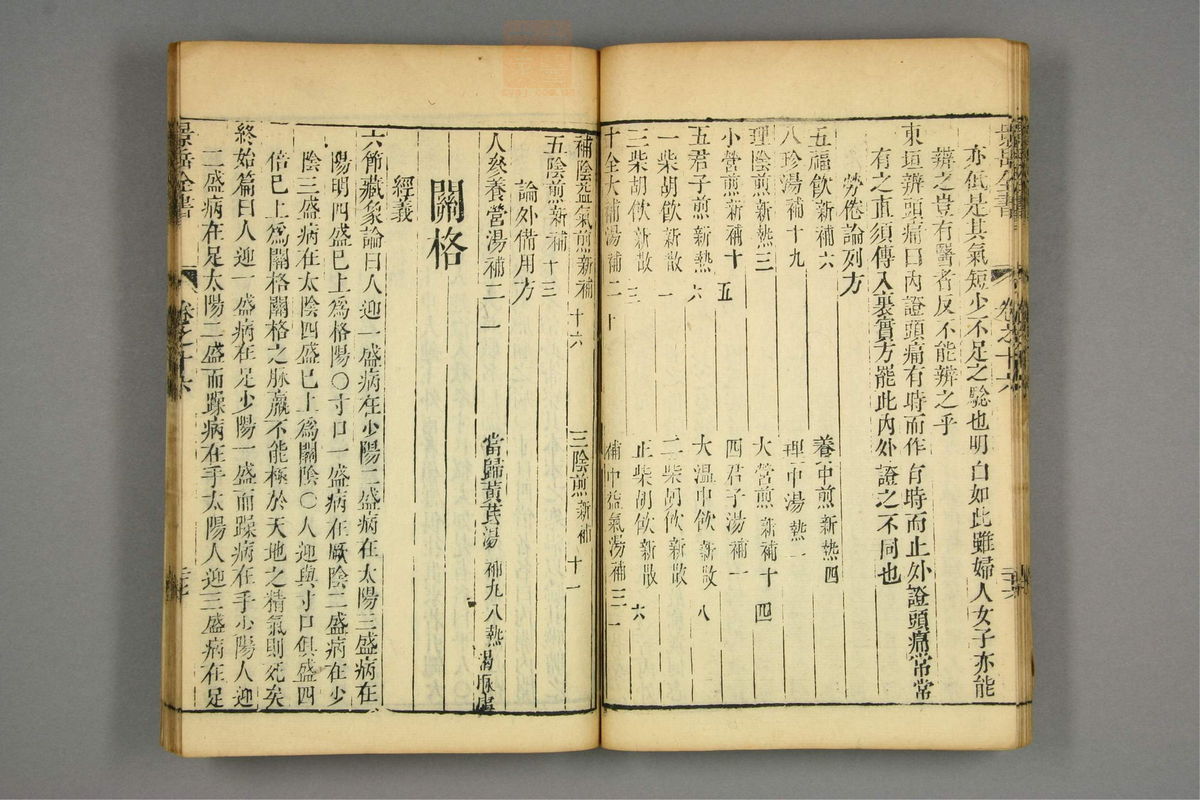 景岳全書
卷之十六
亦低是其氣短少不足之驗也明白如此雖婦人女子亦能
辨之豈有醫者反不能辨之乎
東垣辨頭痛曰內證頭痛有時而作有時而止外證頭痛常常
有之直須傳入裏實方罷此內外證之不同也
勞倦論列方
五福飲新補六
養中煎新熱四
八珍湯補十九
理中湯熱一
理陰煎新熱三
大營煎新補十四
小營煎新補十五
四君子湯補一
五君子煎新熱六
大溫中飲新散八
一柴胡飲新散一
二柴胡飲新散二
三柴胡飲新散三
正柴胡飲新散六
十全大補湯補二十
補中益氣湯補三一
補陰益氣煎新補十六
三陰煎新補十一
五陰煎新補十三
論外備用方
人參養營湯補二一
當歸黃芪湯補九八熱渴脉虛
關格
經義
六節藏象論曰人迎一盛病在少陽二盛病在太陽三盛病在
陽明四盛已上爲格陽〇寸口一盛病在厥陰二盛病在少
陰三盛病在太陰四盛已上爲關陰〇人迎與寸口俱盛四
倍已上爲關格關格之脉羸不能極於天地之精氣則死矣
終始篇曰人迎一盛病在足少陽一盛而躁病在手少陽人迎
二盛病在足太陽二盛而躁病在手太陽人迎三盛病在足
景岳全書
卷之十六